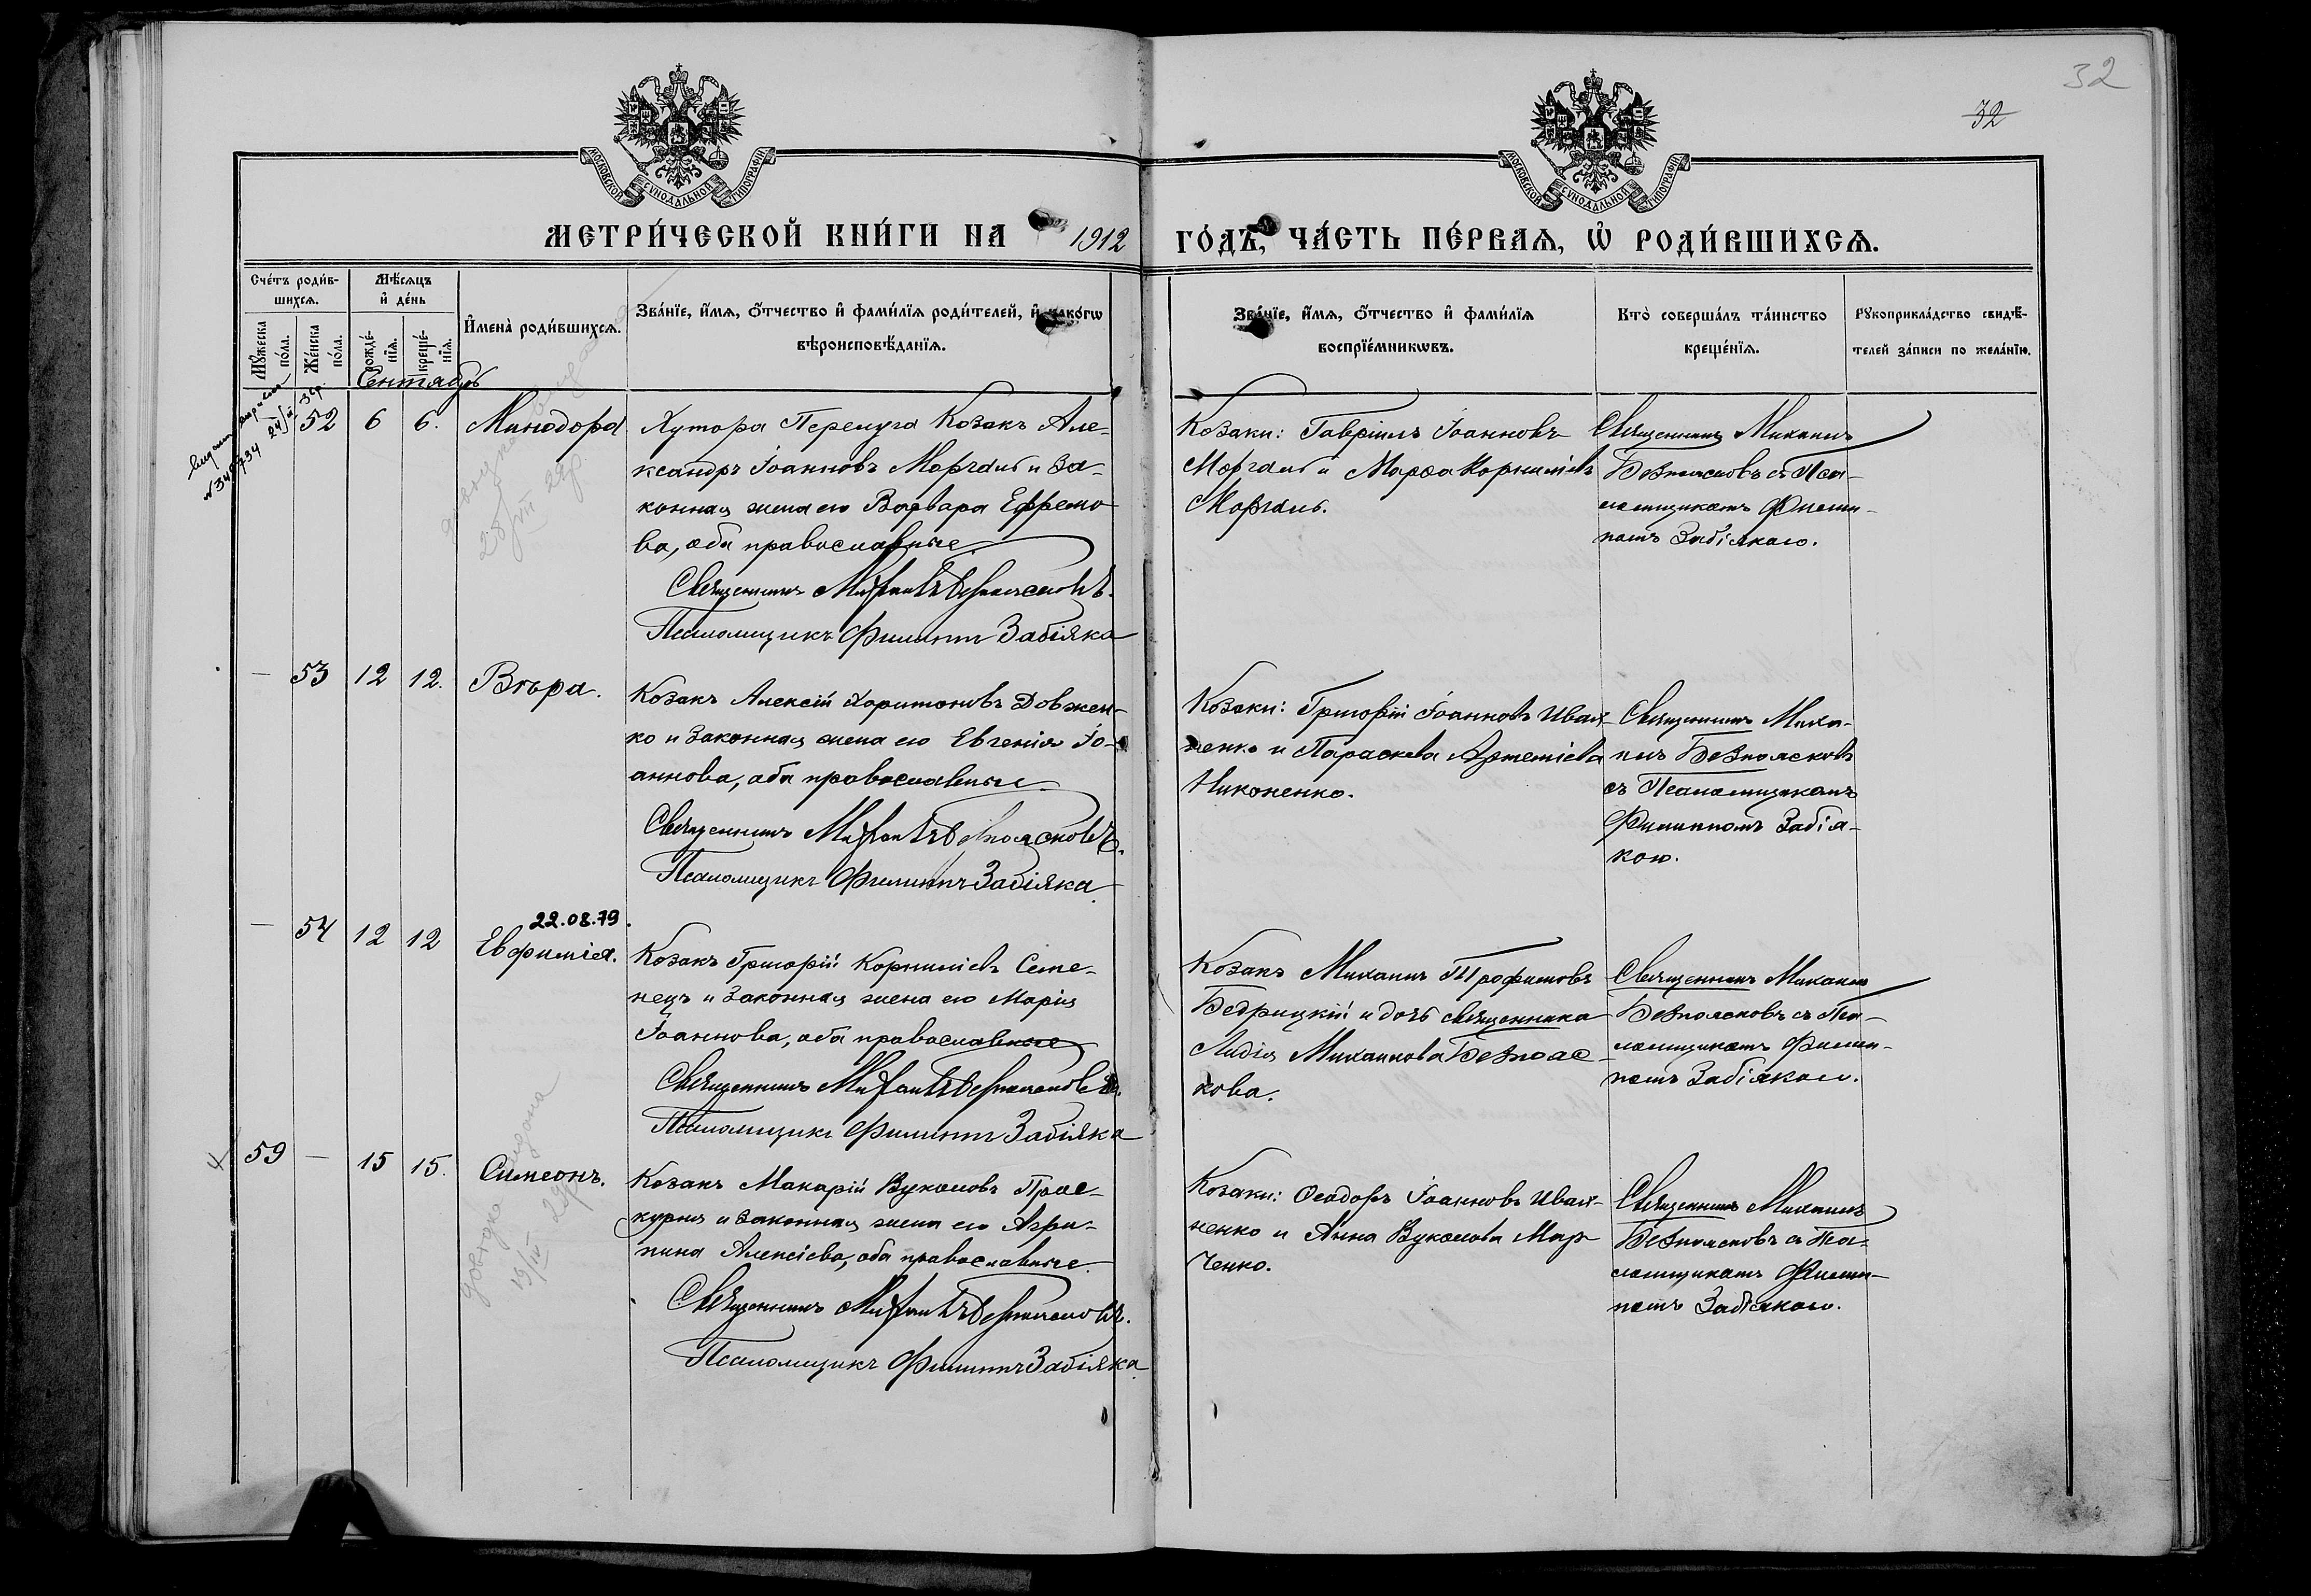 32
32
МОСКОВСКОЙ СѴНОДАЛЬНОЙ ТИПОГРАФІИ
МОСКОВСКОЙ СѴНОДАЛЬНОЙ ТИПОГРАФІИ
МЕТРИ́ЧЕСКОЙ КНИ́ГИ НА 1912 ГО́ДЪ, ЧА́СТЬ ПЕ́РВАѦ, Ѡ҆ РОДИ́ВШИХСѦ.
Сче́тъ роди́в-
шихсѧ.
Мꙋ́жеска
по́ла.
Же́нска
по́ла.
Мѣ́сѧцъ
и҆ де́нь
рожде́-
нїѧ.
креще́-
нїѧ.
И҆мена̀ роди́вшихсѧ.
Зва́нїе, и҆́мѧ, ѻ҆́тчество и҆ фами́лїѧ роди́телей, и҆ како́гѡ
вѣроисповѣ́данїѧ.
Зва́нїе, и҆́мѧ, ѻ҆́тчество и҆ фами́лїѧ
воспрїе́мникѡвъ.
Кто̀ соверша́лъ та́инство
креще́нїѧ.
Рꙋкоприкла́дство свидѣ́-
телей за́писи по жела́нїю.
Сентябрь
52 6 6. Минодора
Хутора Перелуга Козакъ Але-
ксандръ Іоанновъ Моргаль и за-
конная жена его Варвара Ефремо-
ва, оба православные.
Священникъ Михаилъ Безпоясковъ.
Псаломщикъ Филиппъ Забіяка
Козаки: Гавріилъ Іоанновъ
Моргаль и Марѳа Корниліева
Моргаль.
Священникъ Михаилъ
Безпоясковъ съ Пса-
ломщикомъ Филип-
помъ Забіякою.
— 53 12 12. Вѣра.
Козакъ Алексій Харитоновъ Довжен-
ко и законная жена его Евгенія Іо-
аннова, оба православные.
Священникъ Михаилъ Безпоясковъ.
Псаломщикъ Филиппъ Забіяка.
Козаки: Григорій Іоанновъ Ивах-
ненко и Параскева Артеміева
Никоненко.
Священникъ Миха-
илъ Безпоясковъ
съ Псаломщикомъ
Филиппомъ Забія-
кою.
22.08.79.
— 54 12 12 Евфимія.
Козакъ Григорій Корниліевъ Семе-
нецъ и законная жена его Марія
Іоаннова, оба православные
Священникъ Михаилъ Безпоясковъ.
Псаломщикъ Филиппъ Забіяка
Козакъ Михаилъ Трофимовъ
Бедрицкій и дочь священника
Лидія Михаилова Безпояс-
кова.
Священникъ Михаилъ
Безпоясковъ съ Пса-
ломщикомъ Филип-
помъ Забіякою.
59 — 15 15. Симеонъ.
Козакъ Макарій Вуколовъ Прос-
курня и законная жена его Агри-
пина Алексіева, оба православные.
Священникъ Михаилъ Безпоясковъ.
Псаломщикъ Филиппъ Забіяка.
Козаки: Ѳеодоръ Іоанновъ Ивах-
ненко и Анна Вуколова Мар-
ченко.
Священникъ Михаилъ
Безпоясковъ съ Пса-
ломщикомъ Филип-
помъ Забіякою.